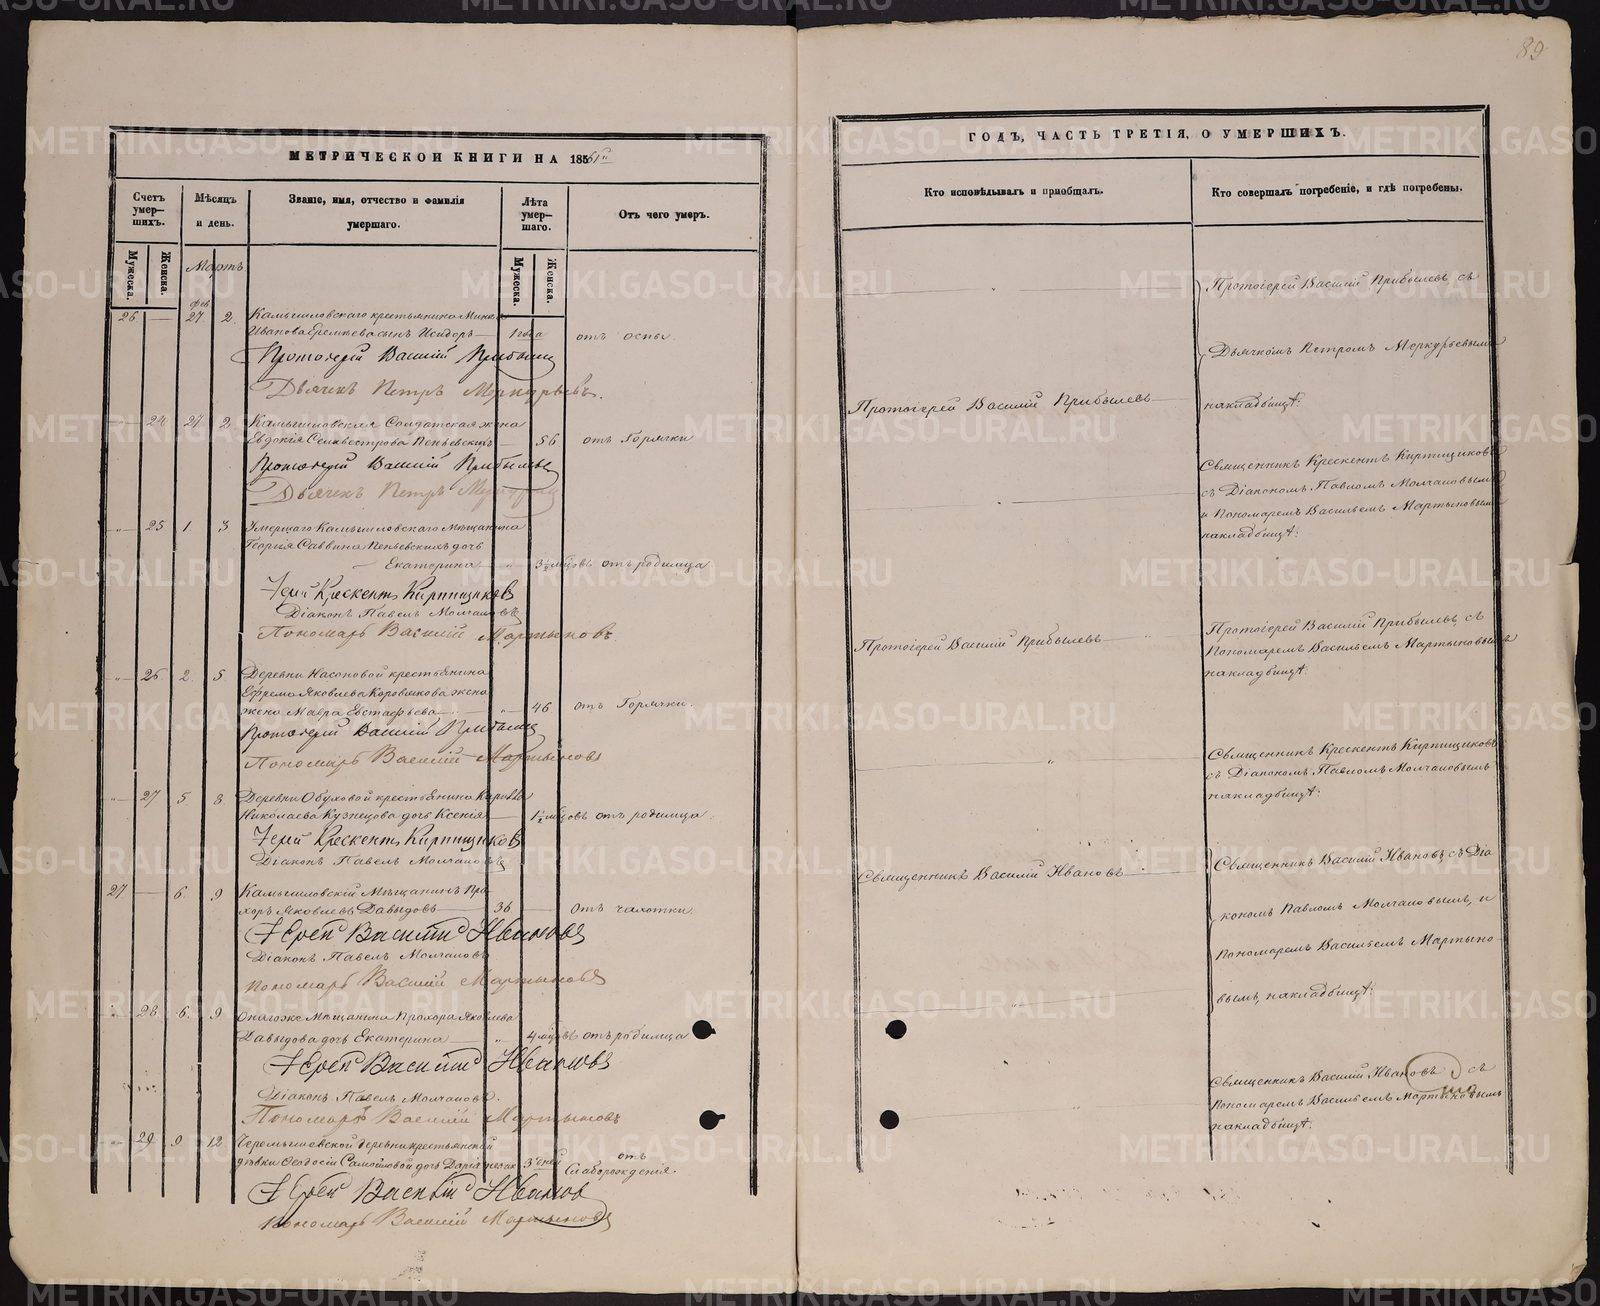 89
МЕТРИЧЕСКОЙ КНИГИ НА 1861й
Счетъ умер-шихъ.
Мѣсяцъ и день.
Званіе, имя, отчество и фамилія умершаго.
Лѣта умер-шаго.
Отъ чего умеръ.
Мужеска.
Женска.
Мужеска.
Женска.
Мартъ
фев
26 — 27. 2. Камышловскаго крестьянина
Иванова Еремѣева сынъ Исидоръ — 1 года отъ оспы.
Протоіерей Василій Прибылевъ
Дьячекъ Петръ Меркурьевъ.
24 27. 2. Камышловская Солдатская жена
Евдокія Селивестрова Пеньевскихъ — 56 отъ Горячки
Протоіерей Василій Прибылевъ
Дьячекъ Петръ Меркурьевъ
„ 25 1. 3 Умершаго Камышловскаго Мѣщанина
Георгія Саввина Пеньевскихъ дочь
Екатерина — 3½ мѣсцовъ отъ родимца
Іерей Крескентъ Кирпищиковъ
Діаконъ Павелъ Молчановъ
Пономарь Василій Мартыновъ
„ 26 2. 5. Деревни Насоновой крестьянина
Ефрема Яковлева Коровякова жена
жена Мавра Евстафьева — „ 46 отъ Горячки.
Протоіерей Василій Прибылевъ
Пономарь Василій Мартыновъ
„ 27 5 8. Деревни Обуховой крестьянина
Николаева Кузнецова дочь Ксенія — 1½ мѣсцовъ отъ родимца.
Іерей Крескентъ Кирпищиковъ
Діаконъ Павелъ Молчановъ
27 — 6. 9 Камышловскій Мѣщанинъ Про-
хоръ Яковлевъ Давыдовъ — 36 — отъ чахотки.
Іерей Василій Ивановъ
Діаконъ Павелъ Молчановъ
Пономарь Василій Мартыновъ
„ 28 6. 9. Онагоже Мѣщанина Прохора Яковлева
Давыдова дочь Екатерина „ 4 мѣсцовъ отъ родимца
Іерей Василій Ивановъ
Діаконъ Павелъ Молчановъ.
Пономарь Василій Мартыновъ
29 9 12. Черемышевской деревни крестьянской
дѣвки Ѳеодосіи Самойловой дочь Дарія 3 дней отъ
Слаборожденія.
Іерей Василій Ивановъ
Пономарь Василій Мартыновъ
ГОДЪ, ЧАСТЬ ТРЕТІЯ, О УМЕРШИХЪ.
Кто исповѣдывалъ и пріобщалъ.
Кто совершалъ погребеніе, и гдѣ погребены.
Протоіерей Василій Прибылевъ съ
Дьячкомъ Петромъ Меркурьевымъ
накладбищѣ:
Протоіерей Василій Прибылевъ
Священникъ Крескентъ Кирпищиковъ
съ Діакономъ Павломъ Молчановымъ
и Пономаремъ Васильемъ Мартыновымъ
накладбищѣ:
Протоіерей Василій Прибылевъ
Протоіерей Василій Прибылевъ съ
Пономаремъ Васильемъ Мартыновымъ
накладбищѣ:
Священникъ Крескентъ Кирпищиковъ
съ Діакономъ Павломъ Молчановымъ
накладбищѣ:
Священникъ Василій Ивановъ
Священникъ Василій Ивановъ, съ Діа
кономъ Павломъ Молчановымъ, и
Пономаремъ Васильемъ Мартыно-
вымъ, накладбищѣ:
Священникъ Василій Ивановъ съ
Пономаремъ Васильемъ Мартыновымъ
накладбищѣ:
METRIKI.GASO-URAL.RU